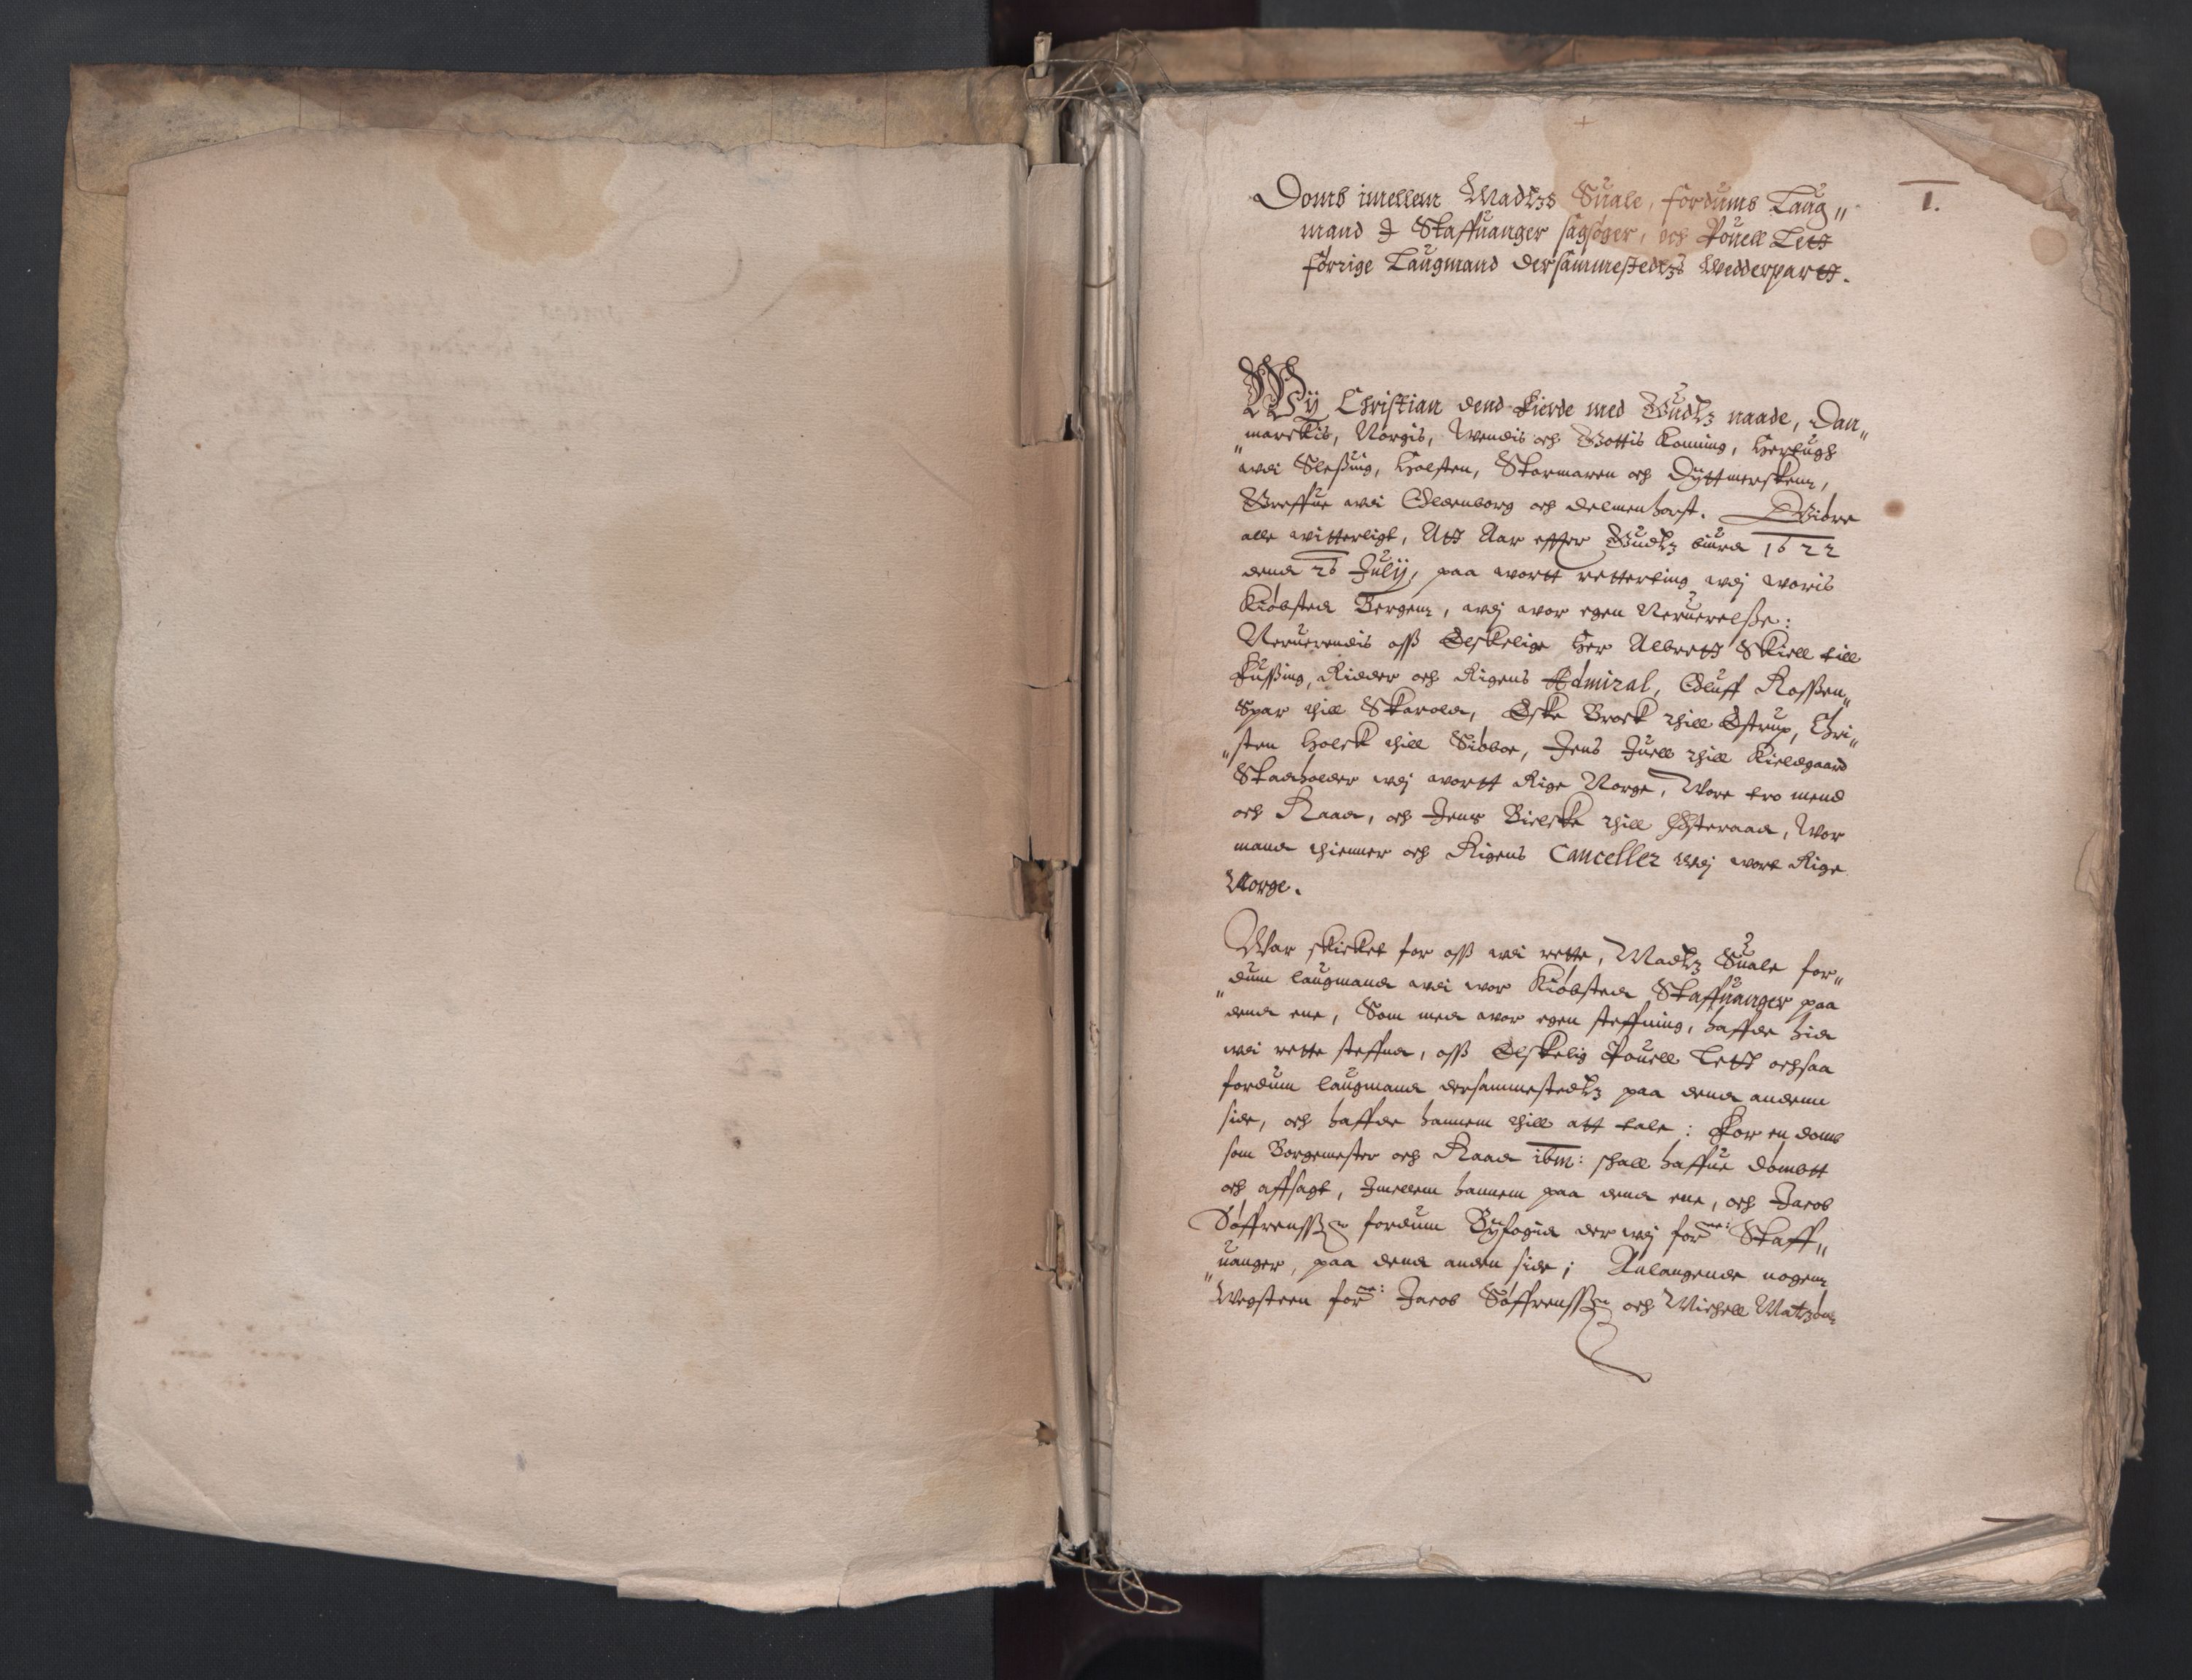 1.
Domb imellem Madtzs Suale, fordums Laug„
mand I Staffuanger sagsøger, och Pouell Lett
forrige Laugmand dersammestedtzs Wedderpartt.
Wÿ Christian dend Fierde med Gudtz naade, Dan„
„marckis, Norgis, Wendis och Gottis Konning, Hertugh
udi Sleßuig, Holsten, Stormaren och Dÿttmersken,
Greffue udi Oldenborg och Delmenhorst. Giøre
alle witterligt, Att Aar effter Gudtz burd 1622
dend 26 Julÿ, paa wortt retterting udj woris
Kiøbsted Bergenn, udj wor egen Neruerelße:
Neruerendis oss Elskelige Her Albrett Skiell till
Fussing, Ridder och Rigens Admiral, Oluff Rossen„
Spar thill Skarold, Eske Brock thill Estrup, Chri„
„sten Holck thill Siøboe, Jens Juell thill Kieldgaard
Stadholder udj wortt Rige Norge, Wore tro mend
och Raad, och Jens Bielcke thill Østeraad, Wor
mand thienner och Rigens Canceller Udj wort Rige
Norge.
War skicket for oss udi rette, Madtz Suale for„
„dum laugmand udi wor Kiøbsted Staffuanger paa
dend ene, Som med wor egen steffning, haffde hid
udi rette steffnd, oss Elskelig Pouell Lett ochsaa
fordum laugmand dersammestedtz paa dend andenn
side, och haffde hannem thill att tale: For en domb
som Borgemester och Raad ibm: schall haffue dømbtt
och affsagt, Imellem hannem paa dend ene, och Jacob
Søffrenssøn fordum Bÿfogid der udj forne: Staff„
„uanger, paa dend anden side; Anlangende nogenn
Wegsteen forne: Jacob Søffrenssøn och Michell Matzønn